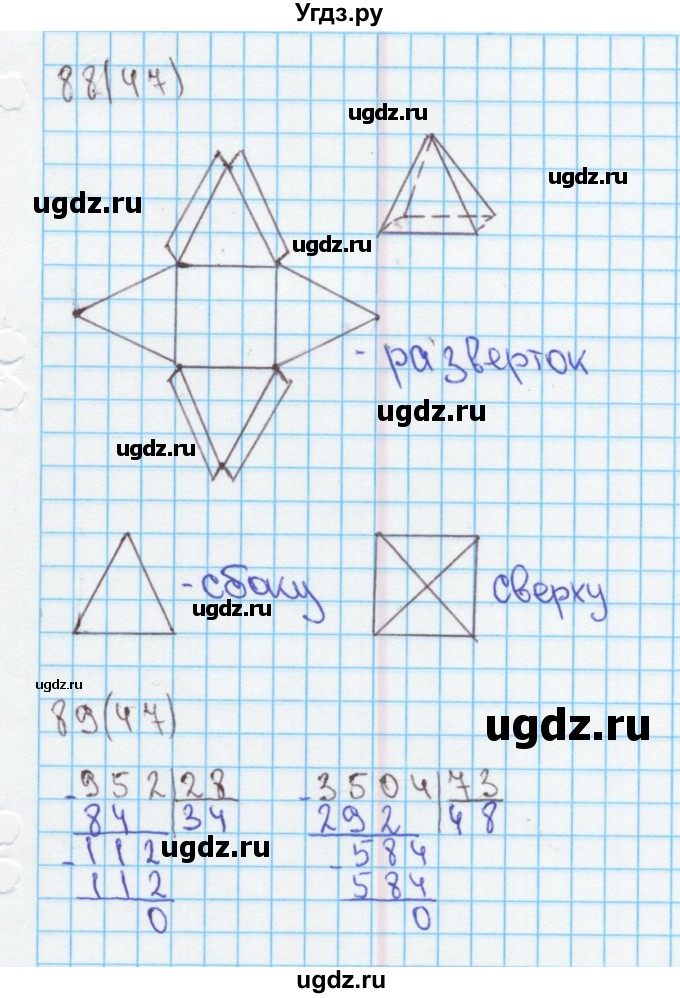 Угдз.ру
88(47)
ugdz.ru
ugdz.ru
ugdz.ru
ugdz.ru
- разверток
ugdz.ru
ugdz.ru
- сбоку
сверху
ugdz.ru
ugdz.ru
89(47)
ugdz.ru
- 952 28
84 34
ugdz.ru
- 112
112
0
- 3504 73
292 48
- 584
584
0
ugdz.ru